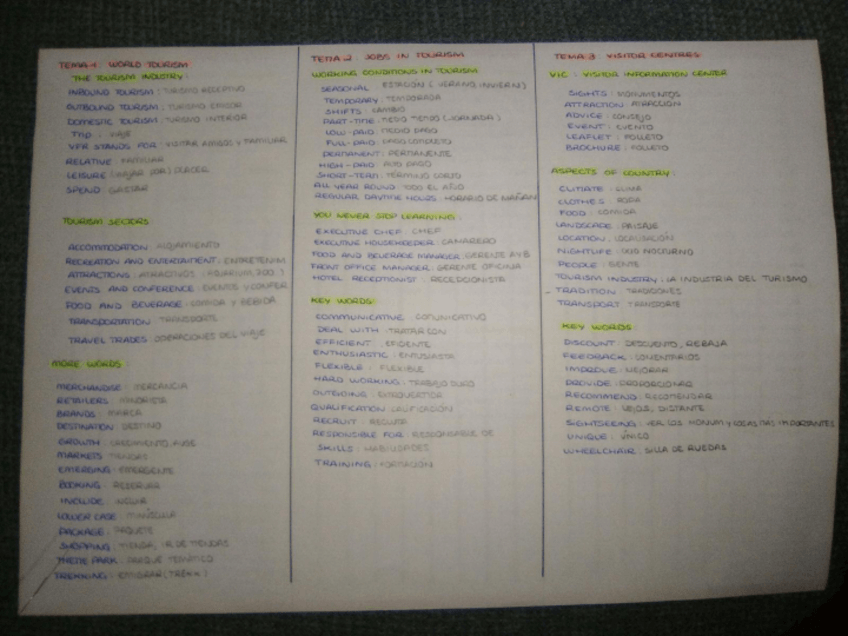 TEMA 1: WORLD TOURISM
THE TOURISM INDUSTRY:
INBOUND TOURISM: TURISMO RECEPTIVO
OUTBOUND TOURISM: TURISMO EMISOR
DOMESTIC TOURISM: TURISMO INTERIOR
TRIP: VIAJE
VFR STANDS FOR: VISITAR AMIGOS Y FAMILIAR
RELATIVE: FAMILIAR
LEISURE (VIAJAR POR) PLACER
SPEND: GASTAR
TOURISM SECTORS
ACCOMMODATION: ALOJAMIENTO
RECREATION AND ENTERTAIMENT: ENTRETENIM
ATTRACTIONS: ATRACTIVOS (AQUARIUM, ZOO)
EVENTS AND CONFERENCE: EVENTOS Y CONFER
FOOD AND BEVERAGE: COMIDA Y BEBIDA
TRANSPORTATION: TRANSPORTE
TRAVEL TRADES: OPERACIONES DEL VIAJE
MORE WORDS:
MERCHANDISE: MERCANCIA
RETAILERS: MINORISTA
BRANDS: MARCA
DESTINATION: DESTINO
GROWTH: CRECIMIENTO, AUGE
MARKETS: TIENDAS
EMERGING: EMERGENTE
BOOKING: RESERVAR
INCLUDE: INCLUIR
LOWER CASE: MINÚSCULA
PACKAGE: PAQUETE
SHOPPING: TIENDA, IR DE TIENDAS
THEME PARK: PARQUE TEMÁTICO
TREKKING: EMIGRAR (TREKK)
TEMA 2: JOBS IN TOURISM
WORKING CONDITIONS IN TOURISM
SEASONAL: ESTACIÓN (VERANO, INVIERN)
TEMPORARY: TEMPORADA
SHIFTS: CAMBIO
PART-TIME: MEDIO TIEMPO (JORNADA)
LOW-PAID: MEDIO PAGO
FULL-PAID: PAGO COMPLETO
PERMANENT: PERMANENTE
HIGH-PAID: ALTO PAGO
SHORT-TERM: TERMINO CORTO
ALL YEAR ROUND: TODO EL AÑO
REGULAR DAYTIME HOURS: HORARIO DE MAÑAN
YOU NEVER STOP LEARNING:
EXECUTIVE CHEF: CHEF
EXECUTIVE HOUSEKEEPER: CAMARERO
FOOD AND BEVERAGE MANAGER: GERENTE AYB
FRONT OFFICE MANAGER: GERENTE OFICINA
HOTEL RECEPTIONIST: RECEPCIONISTA
KEY WORDS:
COMMUNICATIVE: COMUNICATIVO
DEAL WITH: TRATAR CON
EFFICIENT: EFICIENTE
ENTHUSIASTIC: ENTUSIASTA
FLEXIBLE: FLEXIBLE
HARD WORKING: TRABAJO DURO
OUTGOING: EXTROVERTIDA
QUALIFICATION: CALIFICACIÓN
RECRUIT: RECLUTA
RESPONSIBLE FOR: RESPONSABLE DE
SKILLS: HABILIDADES
TRAINING: FORMACIÓN
TEMA 3: VISITOR CENTRES
VIC: VISITOR INFORMATION CENTER
SIGHTS: MONUMENTOS
ATTRACTION: ATRACCIÓN
ADVICE: CONSEJO
EVENT: EVENTO
LEAFLET: FOLLETO
BROCHURE: FOLLETO
ASPECTS OF COUNTRY:
CLIMATE: CLIMA
CLOTHES: ROPA
FOOD: COMIDA
LANDSCAPE: PAISAJE
LOCATION: LOCALISACIÓN
NIGHTLIFE: OCIO NOCTURNO
PEOPLE: GENTE
TOURISM INDUSTRY: LA INDUSTRIA DEL TURISMO
- TRADITION: TRADICIONES
TRANSPORT: TRANSPORTE
KEY WORDS:
DISCOUNT: DESCUENTO, REBAJA
FEEDBACK: COMENTARIOS
IMPROVE: MEJORAR
PROVIDE: PROPORCIONAR
RECOMMEND: RECOMENDAR
REMOTE: LEJOS, DISTANTE
SIGHTSEEING: VER LOS MONUM. Y COSAS MAS IMPORTANTES
UNIQUE: ÚNICO
WHEELCHAIR: SILLA DE RUEDAS